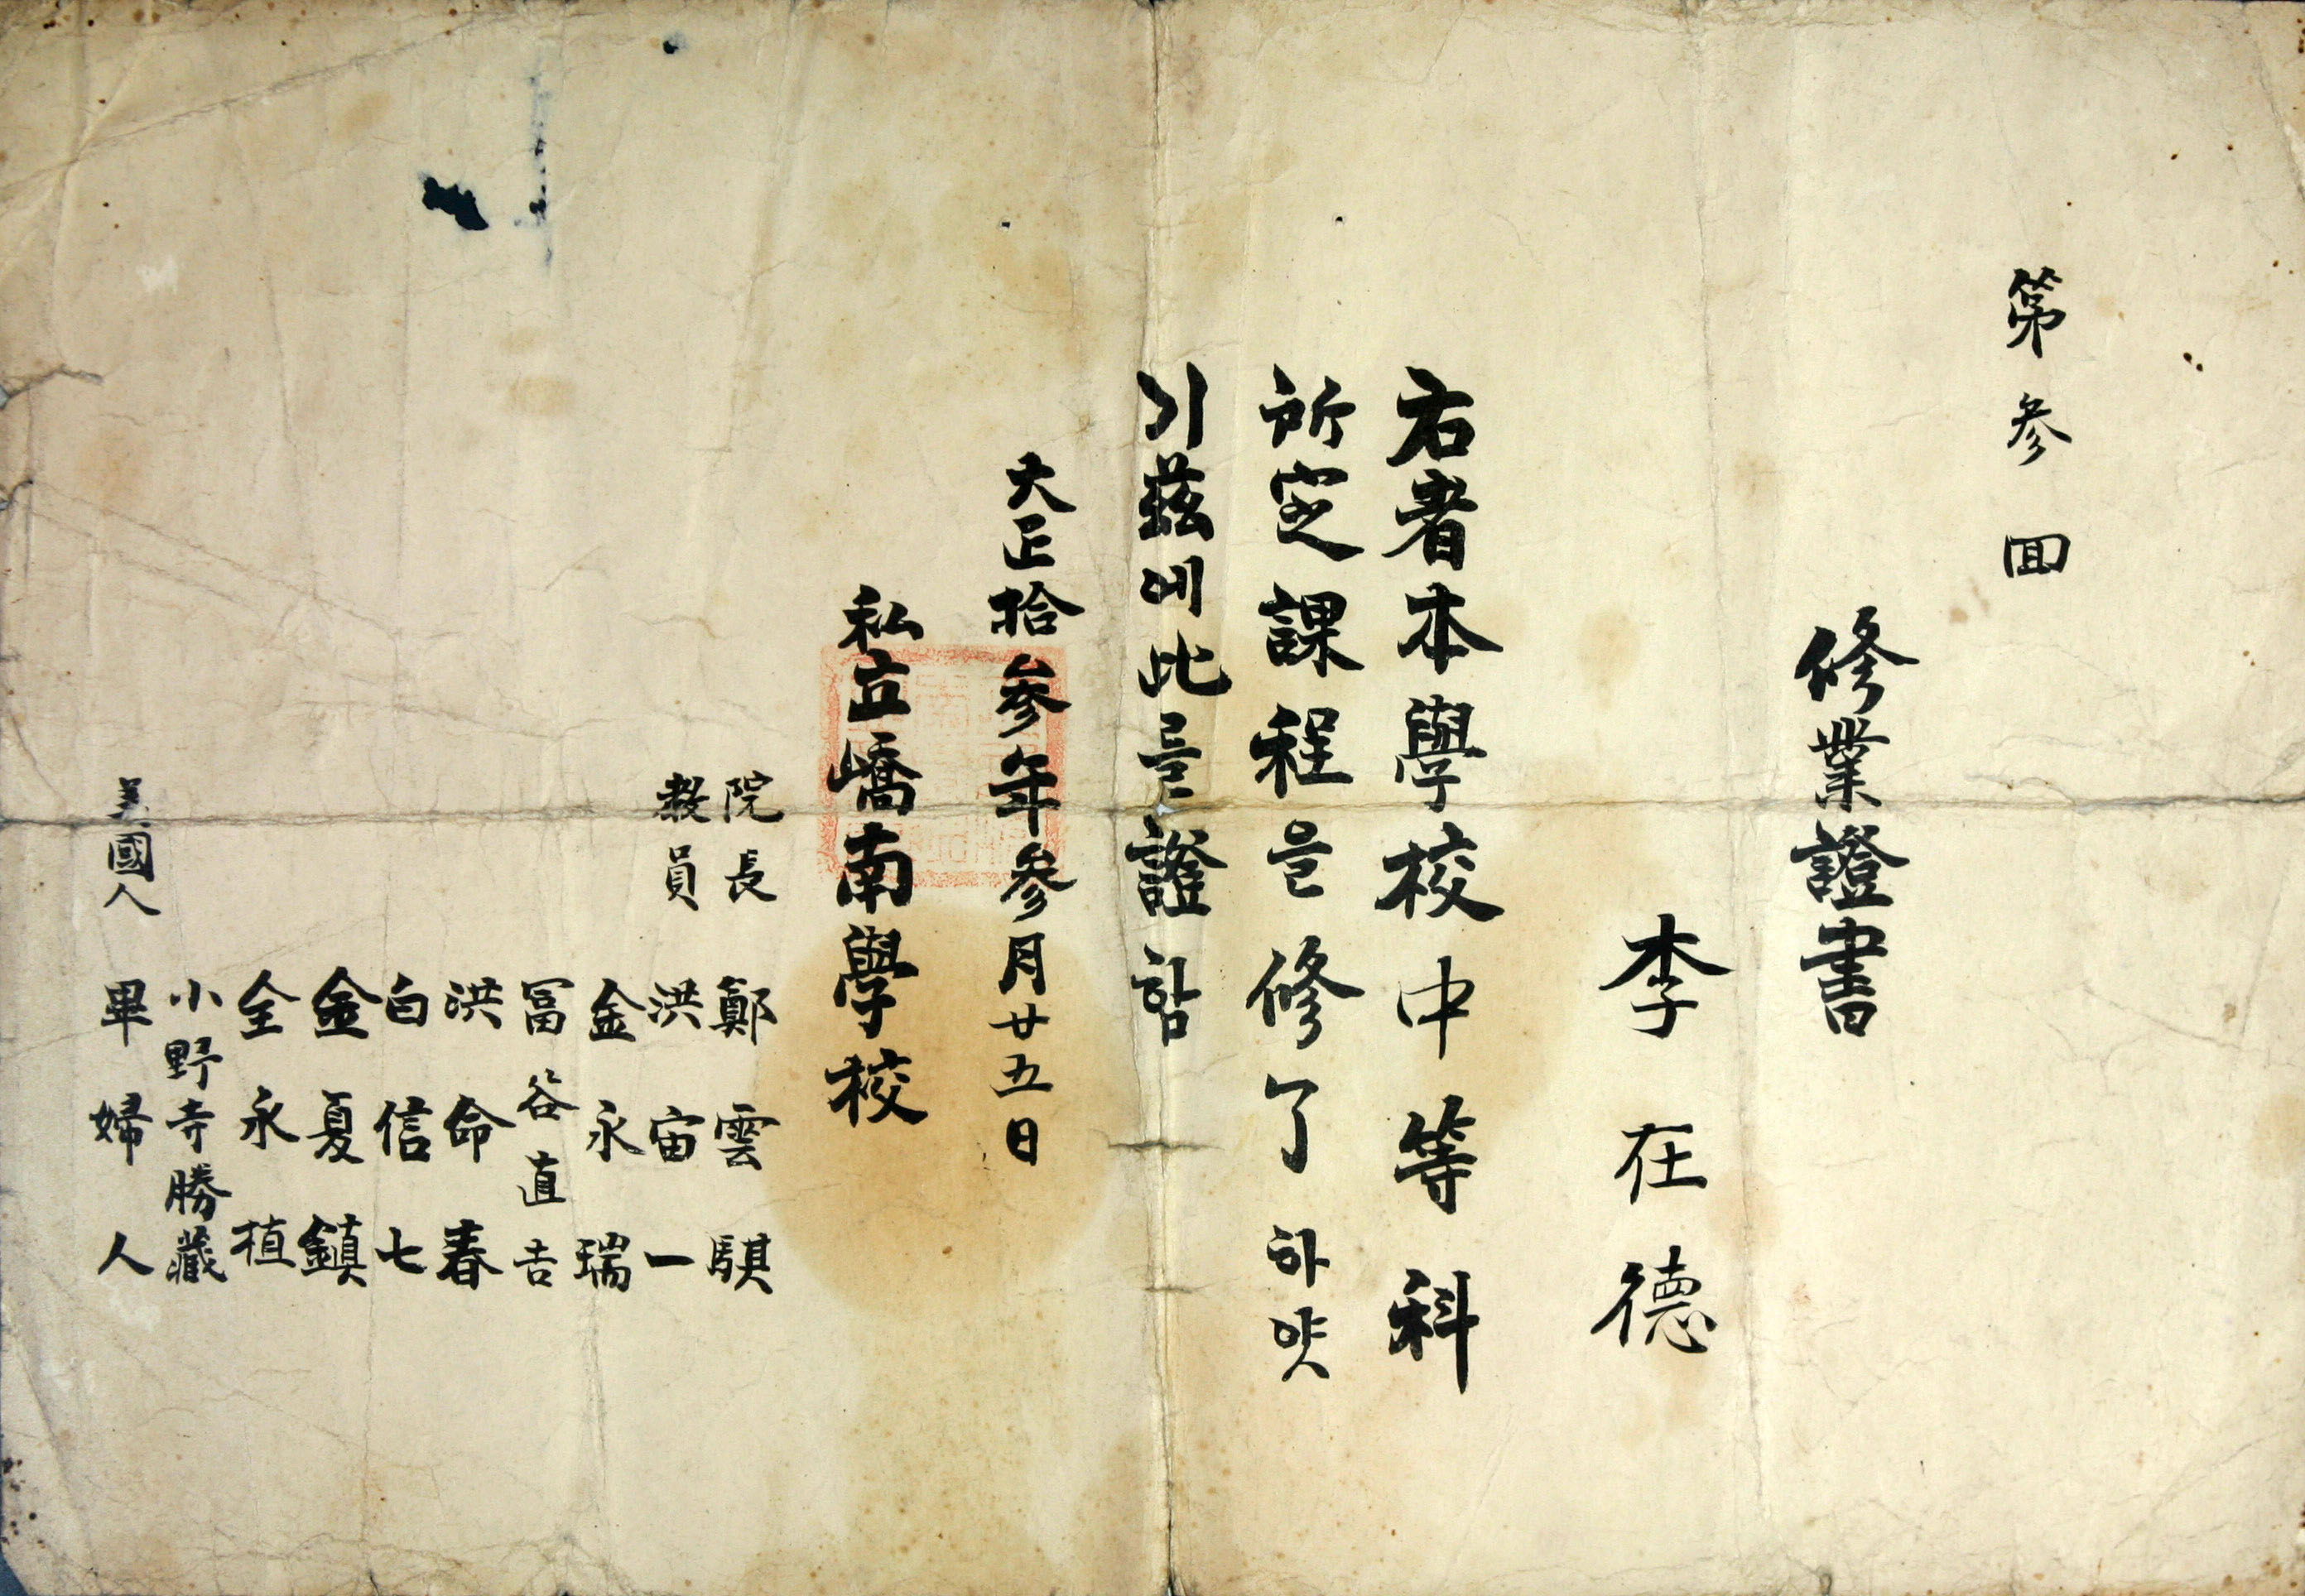 第參回
修業證書
李在德
右者本學校中等科
所定課程을修了하얏
기玆에此를證함
大正拾參年參月廿五日
私立嶠南學校
院長 鄭雲騏
教員 洪宙一
金永瑞
冨谷直吉
洪命春
白信七
金夏鎭
全永植
小野寺勝藏
美國人 畢婦人